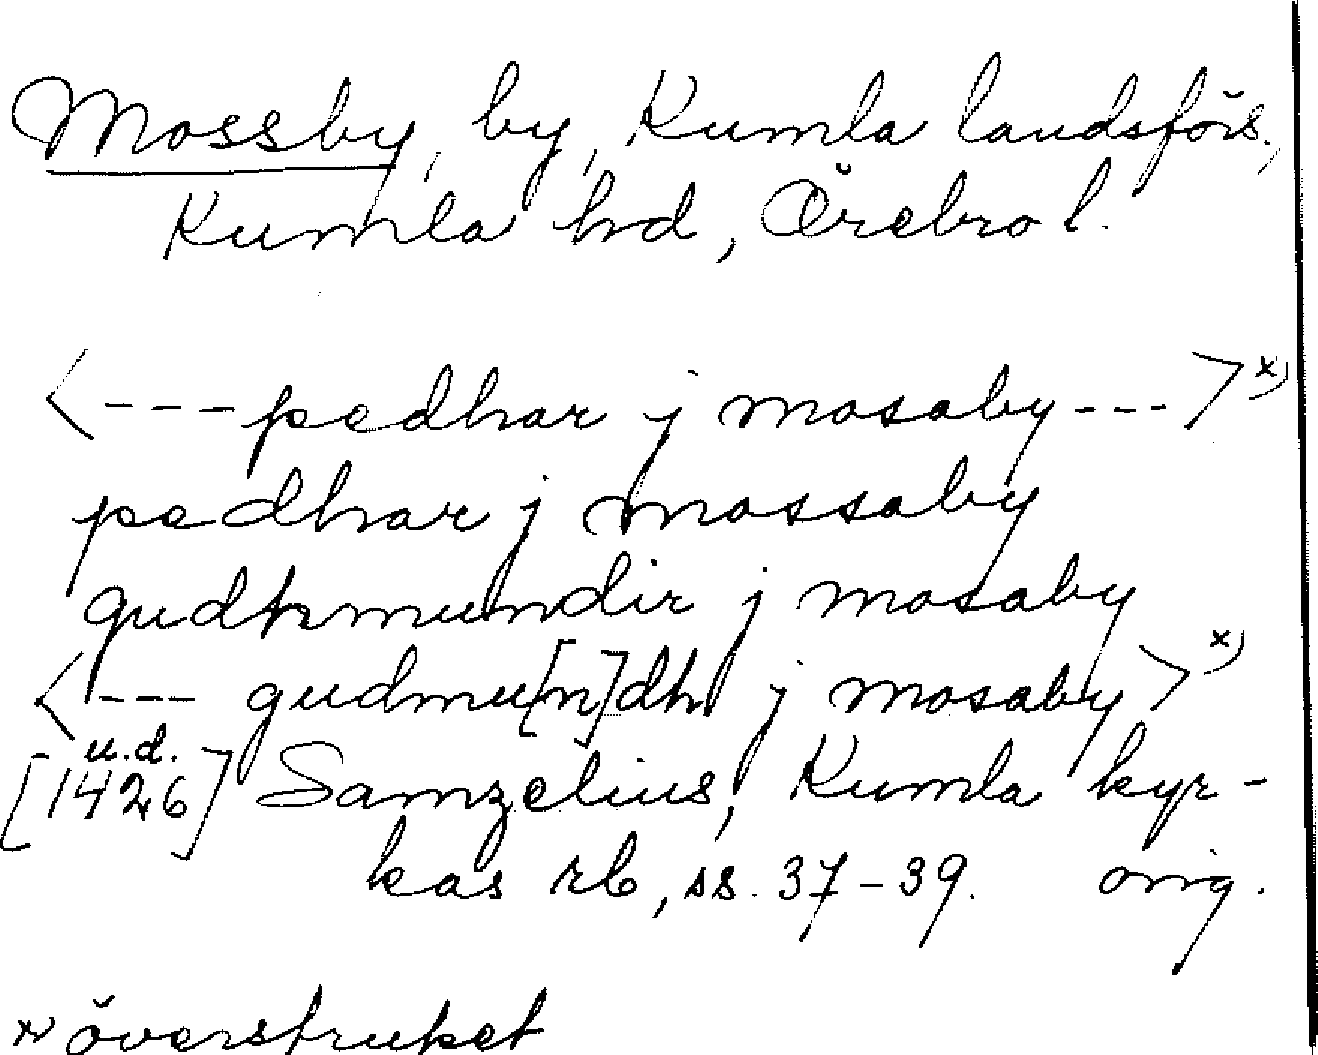 Mossby, by, Kumla landsförs.,
Kumla hd, Örebro l.
<---pedhar j mosaby--->x)
pedhar j mossaby
gudhmundir j mosaby
<--- gudmu[n]dh j mosaby>x)
u.d.
[1426] Samzelius, Kumla kyr-
kas rb, ss. 37-39. orig.
x) överstruket